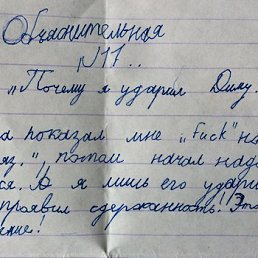 Объяснительная
№11..
„Почему я ударил Диму.
а показал мне „Fuck" на
яд.", потом начал над
ся. А я лишь его удари
проявил сдержанность! Эт
ение!